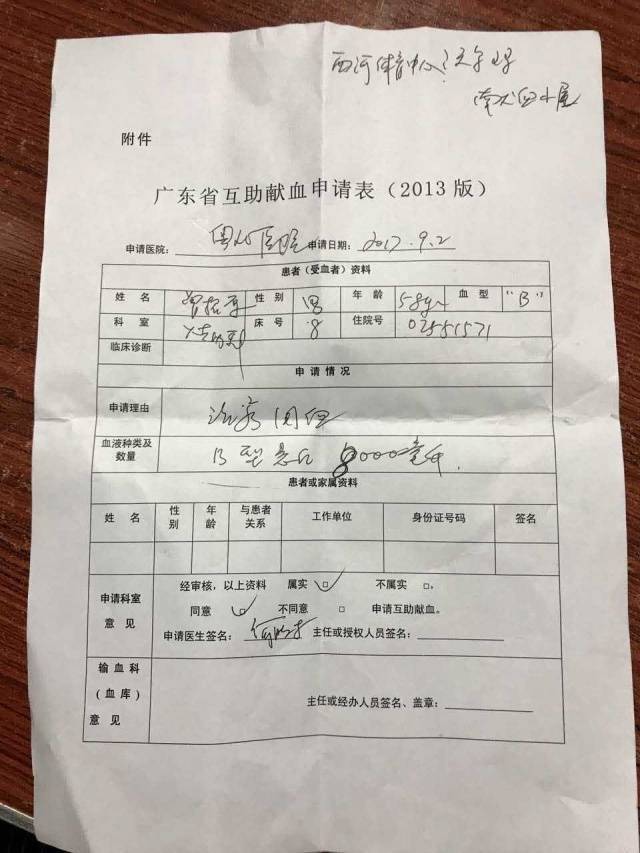 附件
广东省互助献血申请表（2013 版）
申请医院： 医院 申请日期：2017.9.2
患者（受血者）资料
姓 名 性 别 男 年 龄 58 血 型 “B”
科 室 床 号 8 住院号 02551571
临床诊断
申 请 情 况
申请理由
血液种类及数量 B型悬红 8000毫升
患者或家属资料
姓 名 性别 年龄 与患者关系 工作单位 身份证号码 签名
申请科室意 见
经审核，以上资料 属实 ✓□ 不属实 □。
同意 ✓ 不同意 □ 申请互助献血。
申请医生签名： 主任或授权人员签名：
输 血 科（血 库）意 见
主任或经办人员签名、盖章：